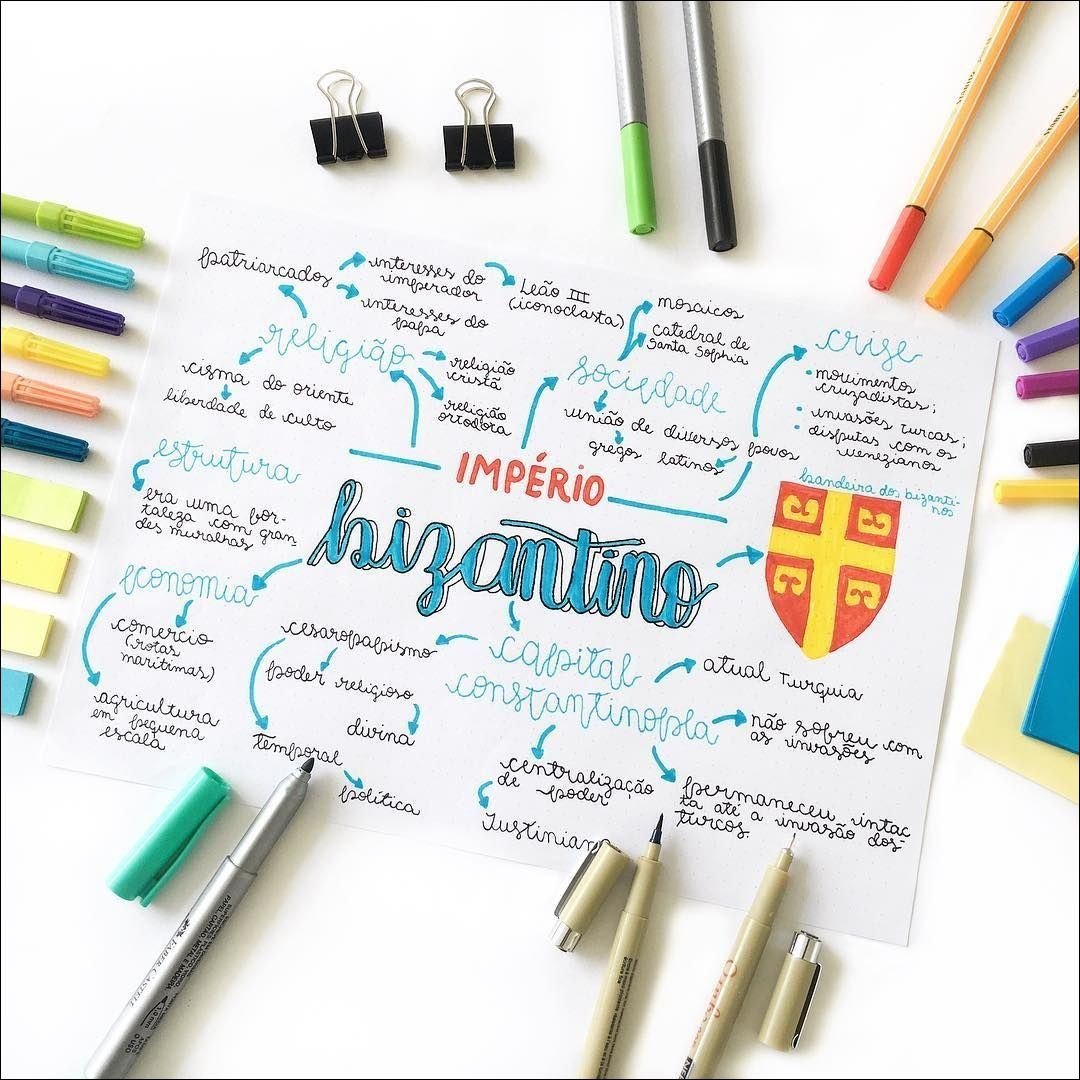 patriarcados
interesses do
imperador
interesses do
papa
Leão III
(iconoclasta)
religião
religião
cristã
religião
ortodoxa
cisma do oriente
liberdade de culto
mosaicos
catedral de
Santa Sophia
sociedade
união de diversos povos
gregos latinos
crise
movimentos
cruzadistas;
invasões turcas;
disputas com os
venezianos
estrutura
era uma for-
taleza com gran-
des muralhas
IMPÉRIO
bizantino
bandeira dos bizanti-
nos
economia
comercio
(rotas
marítimas)
agricultura
em pequena
escala
cesaropapismo
poder religioso
divina
temporal
política
capital
constantinopla
atual Turquia
não sofreu com
as invasões
centralização
de poder
Justiniano
permaneceu intac
ta até a invasão dos
turcos
STABILO
STABILO
FABER-CASTELL
PAPEL, CARTÃO, METAL E MADEIRA
1.0 mm